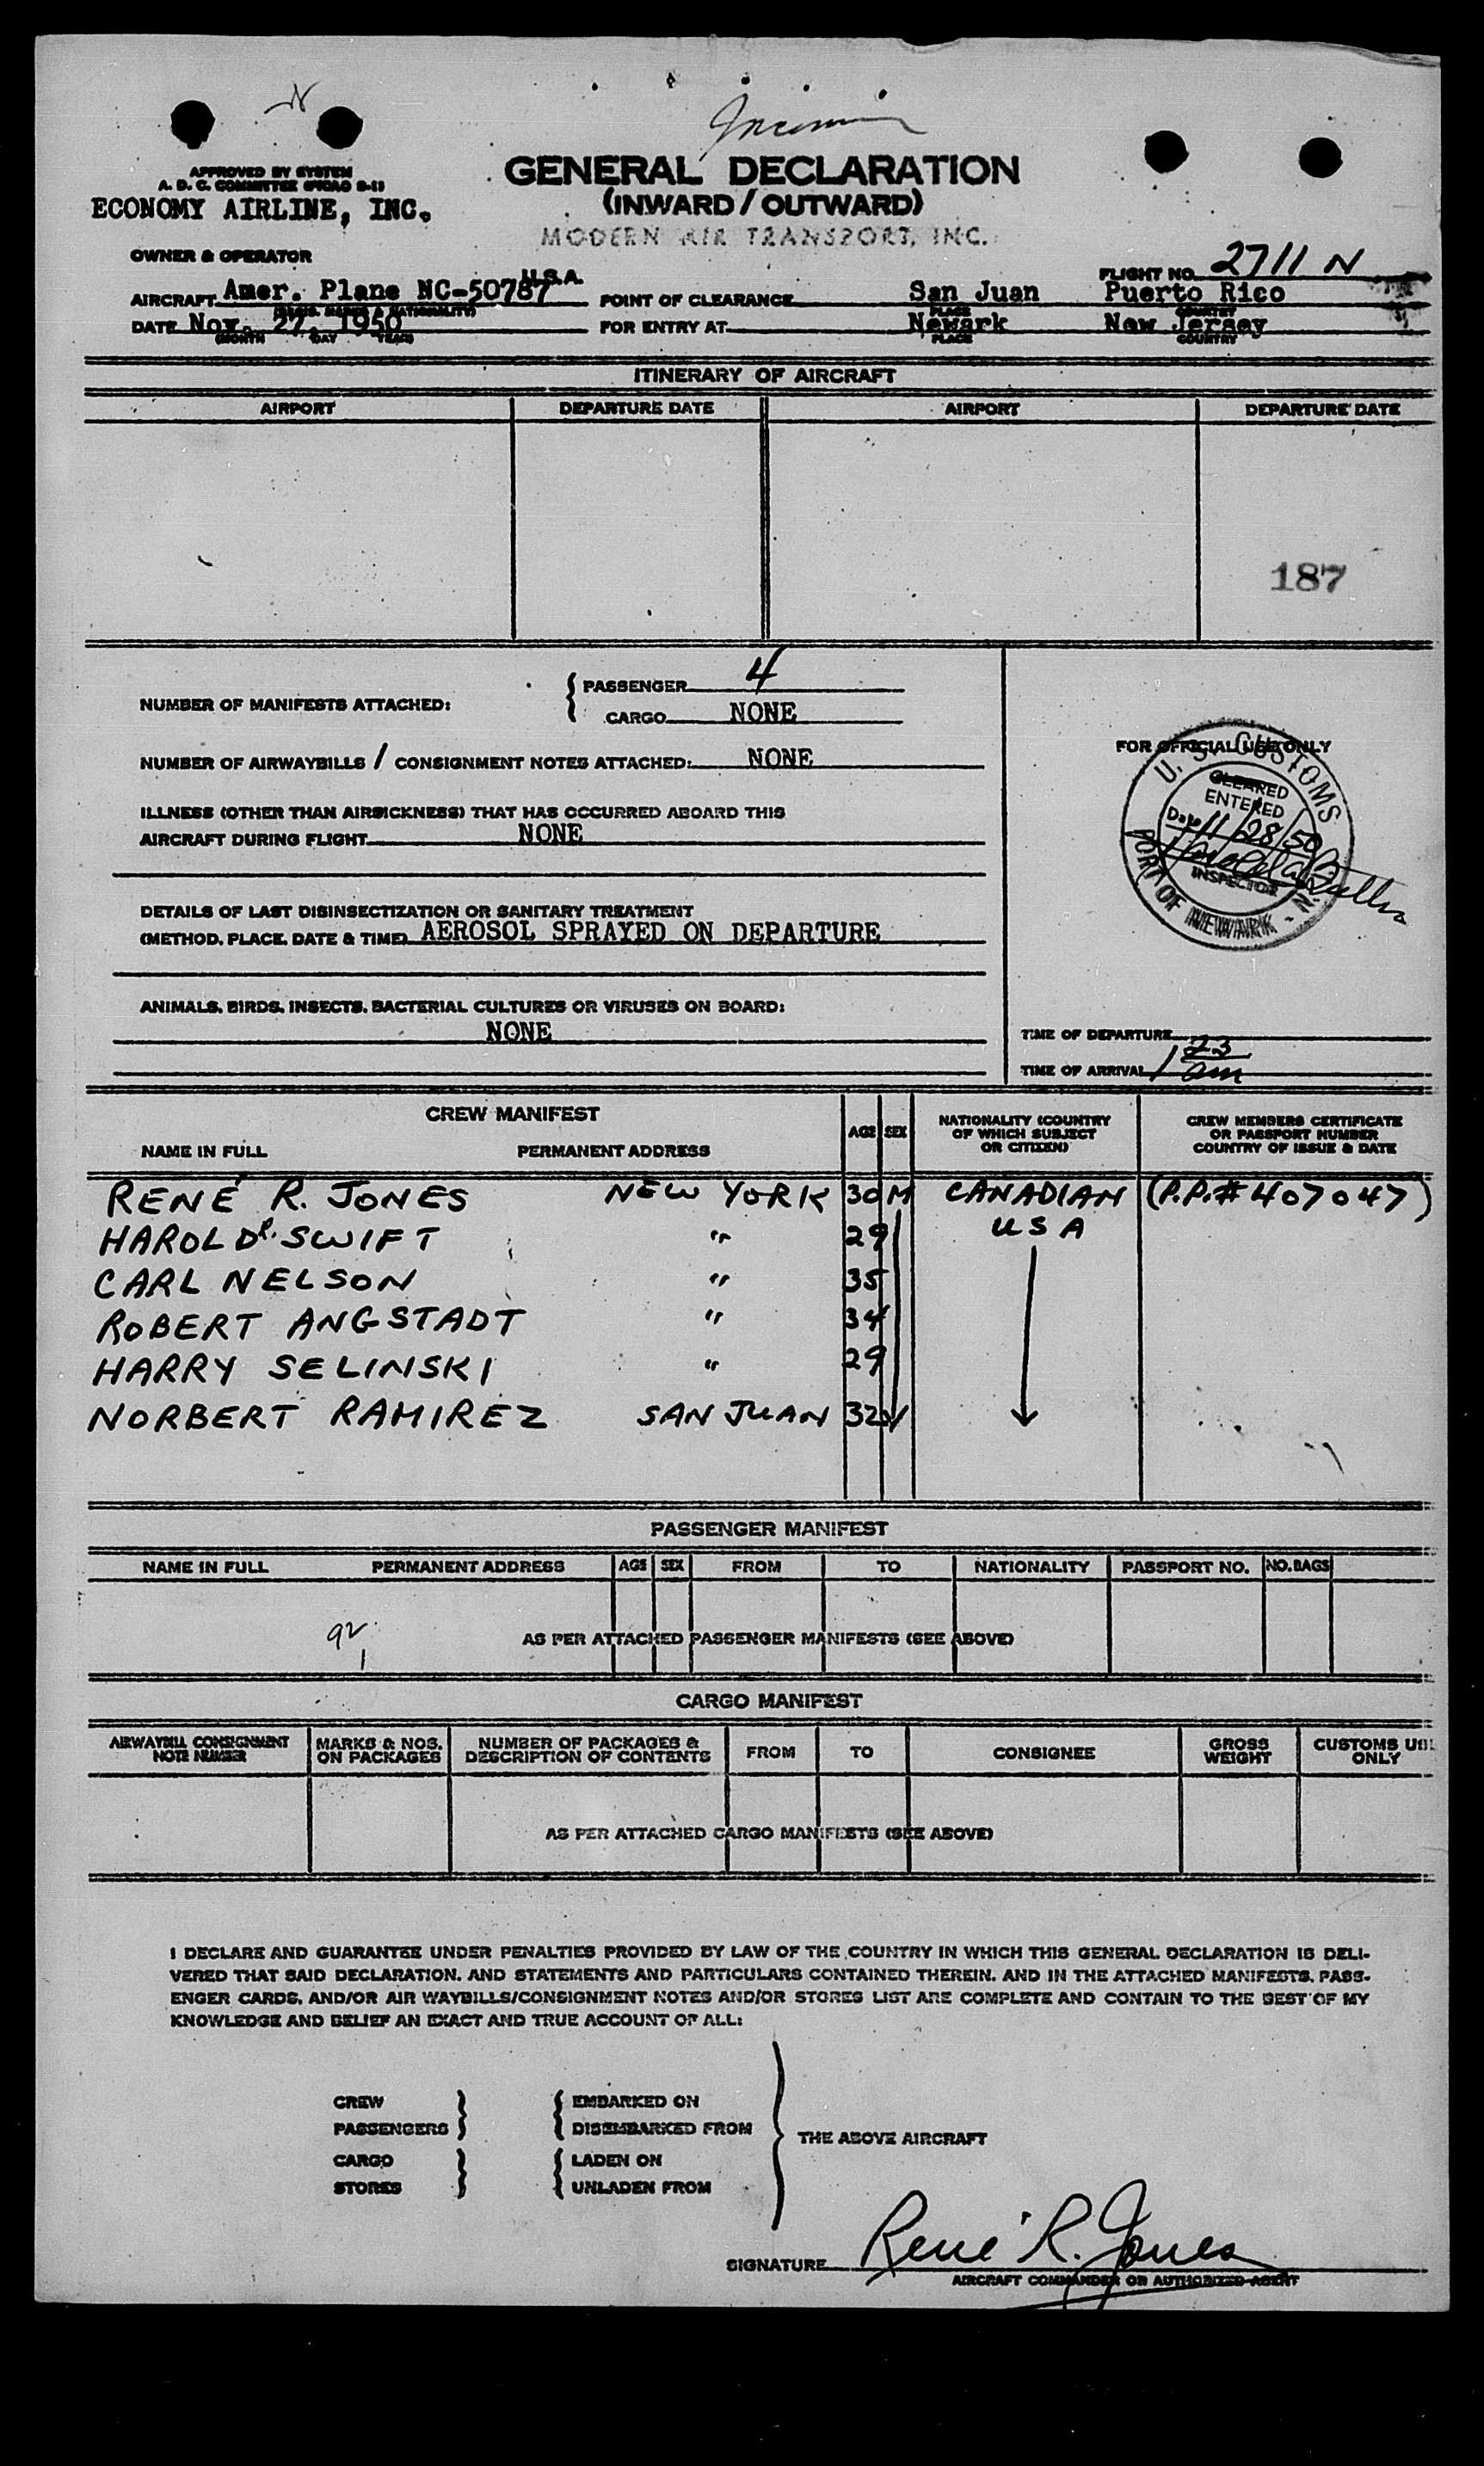 Incoming
APPROVED BY SYSTEM
A. D. C. COMMITTEE
ECONOMY AIRLINE, INC.
GENERAL DECLARATION
(INWARD / OUTWARD)
MODERN AIR TRANSPORT, INC.
OWNER & OPERATOR
FLIGHT NO. 2711 N
AIRCRAFT Amer. Plane NC-50787 U.S.A. POINT OF CLEARANCE San Juan Puerto Rico
(REGIS. MARKS & NATIONALITY) PLACE COUNTRY
DATE Nov. 27, 1950 FOR ENTRY AT Newark New Jersey
(MONTH DAY YEAR) PLACE COUNTRY
ITINERARY OF AIRCRAFT
AIRPORT DEPARTURE DATE AIRPORT DEPARTURE DATE
187
NUMBER OF MANIFESTS ATTACHED: { PASSENGER 4
CARGO NONE
NUMBER OF AIRWAYBILLS / CONSIGNMENT NOTES ATTACHED: NONE
ILLNESS (OTHER THAN AIRSICKNESS) THAT HAS OCCURRED ABOARD THIS
AIRCRAFT DURING FLIGHT NONE
DETAILS OF LAST DISINSECTIZATION OR SANITARY TREATMENT
(METHOD, PLACE, DATE & TIME) AEROSOL SPRAYED ON DEPARTURE
ANIMALS, BIRDS, INSECTS, BACTERIAL CULTURES OR VIRUSES ON BOARD:
NONE
FOR OFFICIAL USE ONLY
U. S. CUSTOMS
CLEARED
ENTERED
Date 11/28/50
INSPECTOR
PORT OF NEWARK - N.
TIME OF DEPARTURE
TIME OF ARRIVAL 1 23 am
CREW MANIFEST
NAME IN FULL PERMANENT ADDRESS AGE SEX NATIONALITY (COUNTRY OF WHICH SUBJECT OR CITIZEN) CREW MEMBERS CERTIFICATE OR PASSPORT NUMBER COUNTRY OF ISSUE & DATE
RENÉ R. JONES NEW YORK 30 M CANADIAN (P.P.# 407047)
HAROLD R. SWIFT " 29 USA
CARL NELSON " 35
ROBERT ANGSTADT " 34
HARRY SELINSKI " 29
NORBERT RAMIREZ SAN JUAN 32
PASSENGER MANIFEST
NAME IN FULL PERMANENT ADDRESS AGE SEX FROM TO NATIONALITY PASSPORT NO. NO. BAGS
92
1
AS PER ATTACHED PASSENGER MANIFESTS (SEE ABOVE)
CARGO MANIFEST
AIRWAYBILL CONSIGNMENT NOTE NUMBER MARKS & NOS. ON PACKAGES NUMBER OF PACKAGES & DESCRIPTION OF CONTENTS FROM TO CONSIGNEE GROSS WEIGHT CUSTOMS USE ONLY
AS PER ATTACHED CARGO MANIFESTS (SEE ABOVE)
I DECLARE AND GUARANTEE UNDER PENALTIES PROVIDED BY LAW OF THE COUNTRY IN WHICH THIS GENERAL DECLARATION IS DELI-
VERED THAT SAID DECLARATION, AND STATEMENTS AND PARTICULARS CONTAINED THEREIN, AND IN THE ATTACHED MANIFESTS, PASS-
ENGER CARDS, AND/OR AIR WAYBILLS/CONSIGNMENT NOTES AND/OR STORES LIST ARE COMPLETE AND CONTAIN TO THE BEST OF MY
KNOWLEDGE AND BELIEF AN EXACT AND TRUE ACCOUNT OF ALL:
CREW } { EMBARKED ON
PASSENGERS } { DISEMBARKED FROM
THE ABOVE AIRCRAFT
CARGO } { LADEN ON
STORES } { UNLADEN FROM
SIGNATURE René R. Jones
AIRCRAFT COMMANDER OR AUTHORIZED AGENT